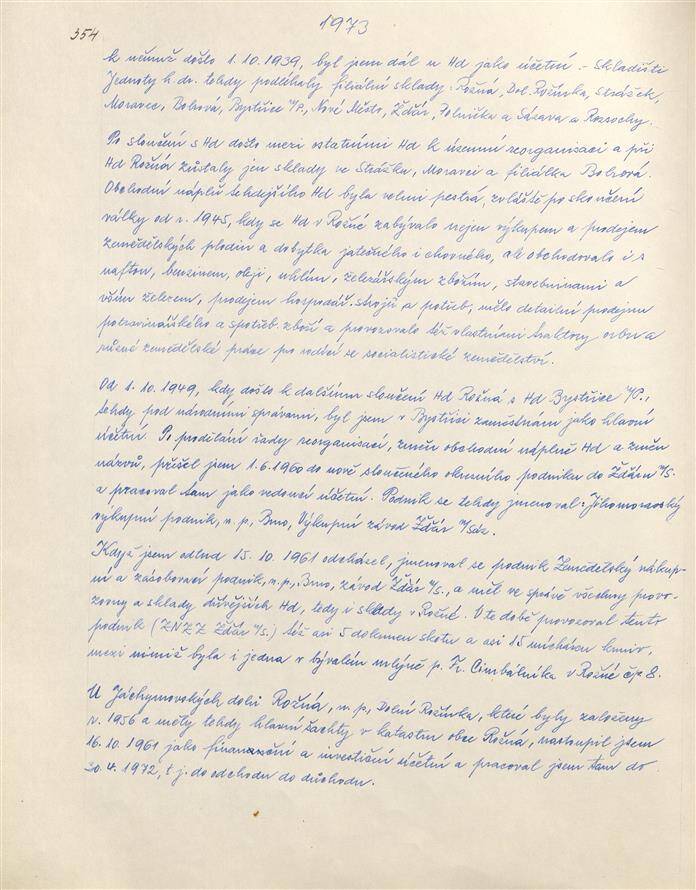 354
1973
k němuž došlo 1.10.1939, byl jsem dál u Hd jako účetní. - Skladišti
Jednoty h. dr. tehdy podléhaly filiální sklady: Rožná, Dol. Rožínka, Strážek,
Moravec, Bohrová, Bystřice n/P., Nové Město, Žďár, Polnička a Sázava a Rozsochy.
Po sloučení s Hd došlo mezi ostatními Hd k územní reorganisaci a při
Hd Rožná zůstaly jen sklady ve Strážku, Moravci a filiálka Bohrová.
Obchodní náplň tehdejšího Hd byla velmi pestrá, zvláště po skončení
války od r. 1945, kdy se Hd v Rožné zabývalo nejen výkupem a prodejem
zemědělských plodin a dobytka jatečného i chovného, ale obchodovalo i s
naftou, benzinem, oleji, uhlím, železářským zbožím, stavebninami a
vším železem, prodejem hospodář. strojů a potřeb, mělo detailní prodejnu
potravinářského a spotřeb. zboží a provozovalo též vlastními traktory orbu a
různé zemědělské práce pro rodící se socialistické zemědělství.
Od 1.10.1949, kdy došlo k dalšímu sloučení Hd Rožná s Hd Bystřice n/P.,
tehdy pod národními správami, byl jsem v Bystřici zaměstnán jako hlavní
účetní. Po prodělání řady reorganisací, změn obchodní náplně Hd a změn
názvů, přešel jsem 1.6.1960 do nově sloučeného okresního podniku do Žďáru n/S.
a pracoval tam jako vedoucí účetní. Podnik se tehdy jmenoval: Jihomoravský
výkupní podnik, n.p., Brno, Výkupní závod Žďár n/Sáz.
Když jsem odtud 15.10.1961 odcházel, jmenoval se podnik Zemědělský nákup-
ní a zásobovací podnik, n.p., Brno, závod Žďár n/S., a měl ve správě všechny provo-
zovny a sklady dřívějších Hd, tedy i sklady v Rožné. V té době provozoval tento
podnik (ZNZZ Žďár n/S.) též asi 5 dokrmen skotu a asi 15 mícháren krmiv,
mezi nimiž byla i jedna v bývalém mlýně p. Fr. Cimbálníka v Rožné čp 8.
U Jáchymovských dolů Rožná, n.p., Dolní Rožínka, které byly založeny
v r. 1956 a měly tehdy hlavní šachty v katastru obce Rožná, nastoupil jsem
16.10.1961 jako finanční a investiční účetní a pracoval jsem tam do
30.4.1972, t.j. do odchodu do důchodu.